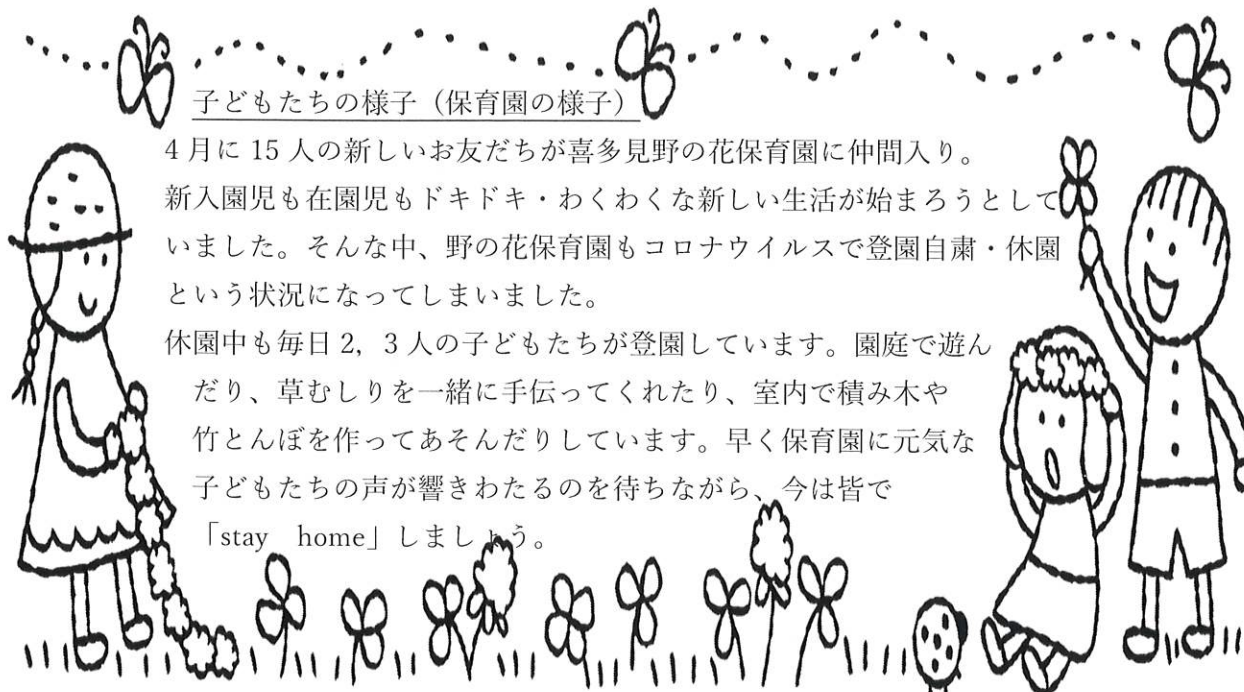 子どもたちの様子（保育園の様子）
4月に15人の新しいお友だちが喜多見野の花保育園に仲間入り。
新入園児も在園児もドキドキ・わくわくな新しい生活が始まろうとして
いました。そんな中、野の花保育園もコロナウイルスで登園自粛・休園
という状況になってしまいました。
休園中も毎日2，3人の子どもたちが登園しています。園庭で遊ん
だり、草むしりを一緒に手伝ってくれたり、室内で積み木や
竹とんぼを作ってあそんだりしています。早く保育園に元気な
子どもたちの声が響きわたるのを待ちながら、今は皆で
「stay　home」しましょう。